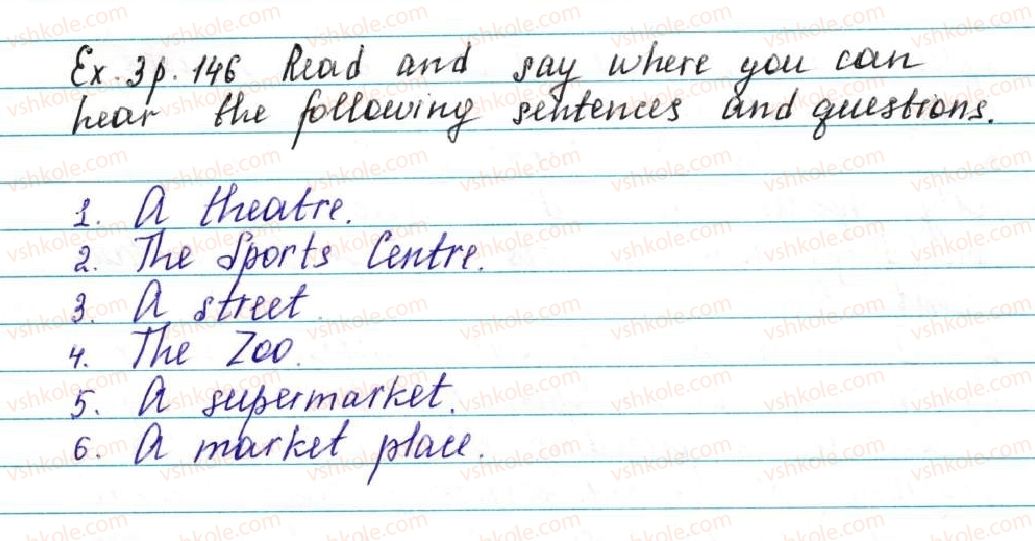 Ex. 3 p. 146 Read and say where you can
hear the following sentences and questions.
1. A theatre.
2. The Sports Centre.
3. A street.
4. The Zoo.
5. A supermarket.
6. A market place.
vshkole.com